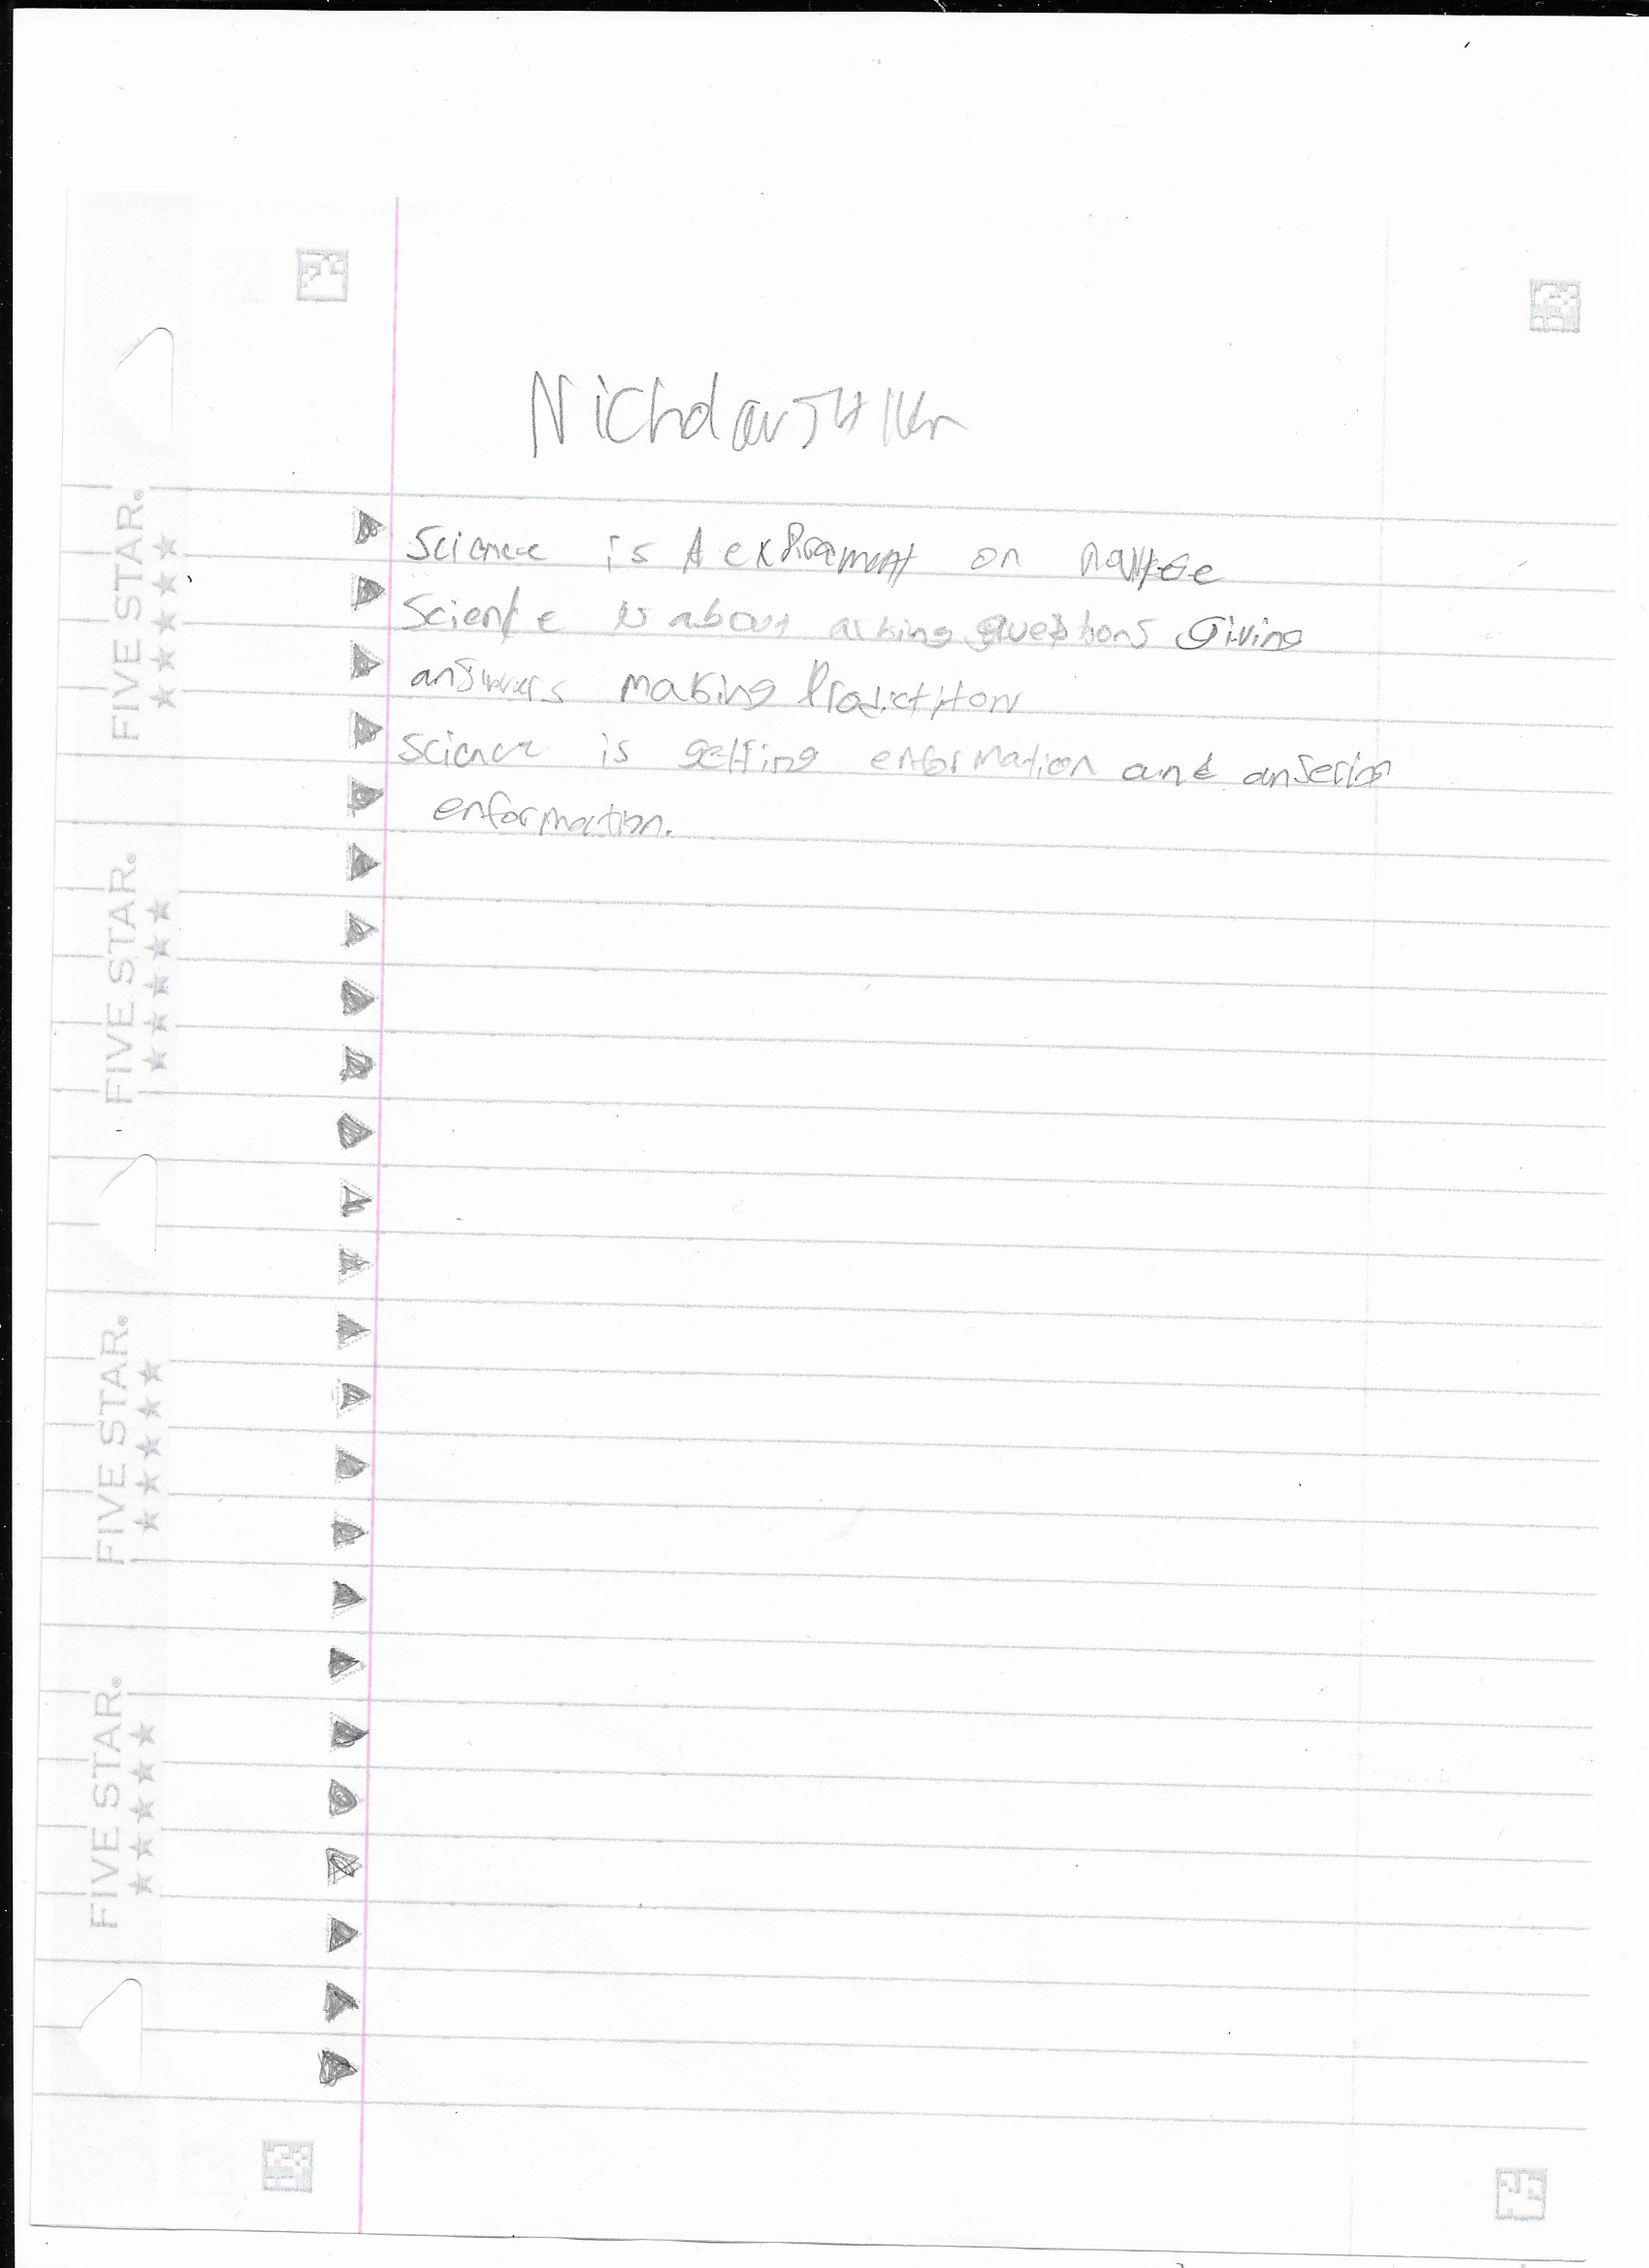 Science is A expirament on
Science is about asking questions Giving
answers making Prodictition
Science is getting enformation and anserin
enformation.
FIVE STAR.
FIVE STAR.
FIVE STAR.
FIVE STAR.